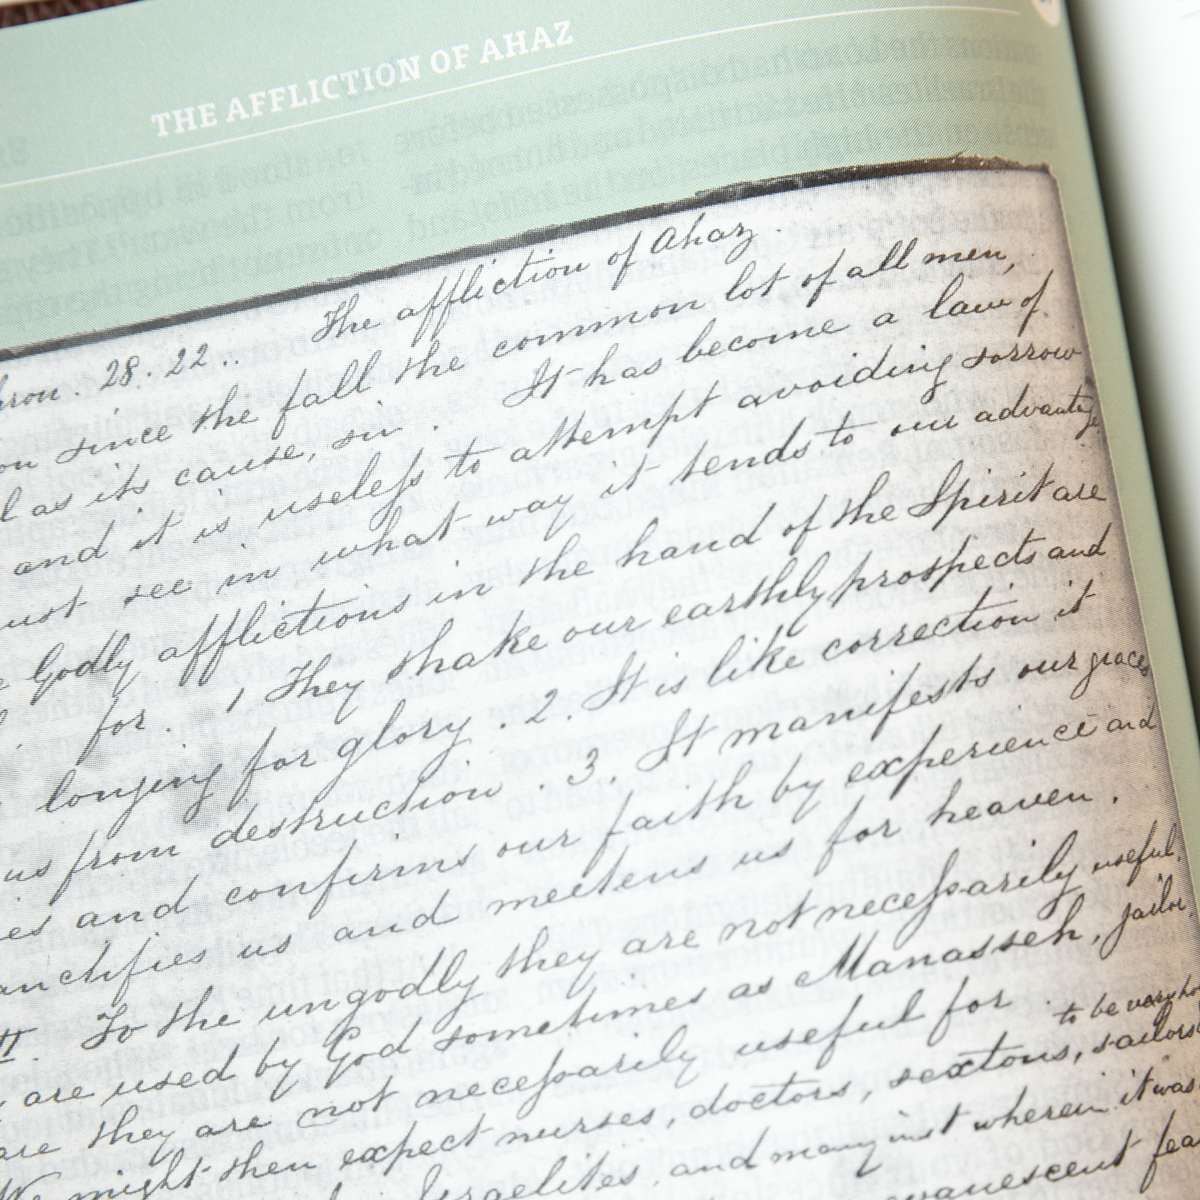 THE AFFLICTION OF AHAZ
28. 22.. The affliction of Ahaz.
since the fall the common lot of all men,
as its cause, sin. It has become a law of
and it is useleſs to attempt avoiding sorrow
see in what way it tends to our advantage
Godly afflictions in the hand of the Spirit are
for. 1 They shake our earthly prospects and
longing for glory. 2. It is like correction it
us from destruction. 3. It manifests our graces
and confirms our faith by experience and
us and meetens us for heaven.
II. To the ungodly they are not neceſsarily useful,
are used by God sometimes as Manasseh, jailor
they are not neceſsarily useful for
to be very
might then expect nurses, doctors, sextons, sailors
Israelites, and many inst wherein it was
evanescent